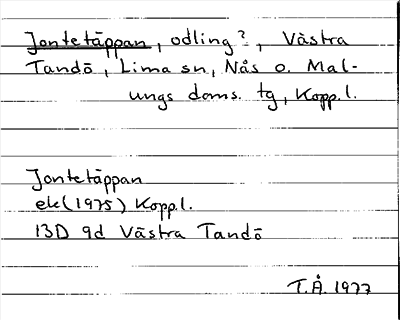 Jontetäppan, odling?, Västra
Tandö, Lima sn, Nås o. Mal-
ungs doms. tg, Kopp. l.
Jontetäppan
ek (1975) Kopp. l.
13D 9d Västra Tandö
T.Å. 1977